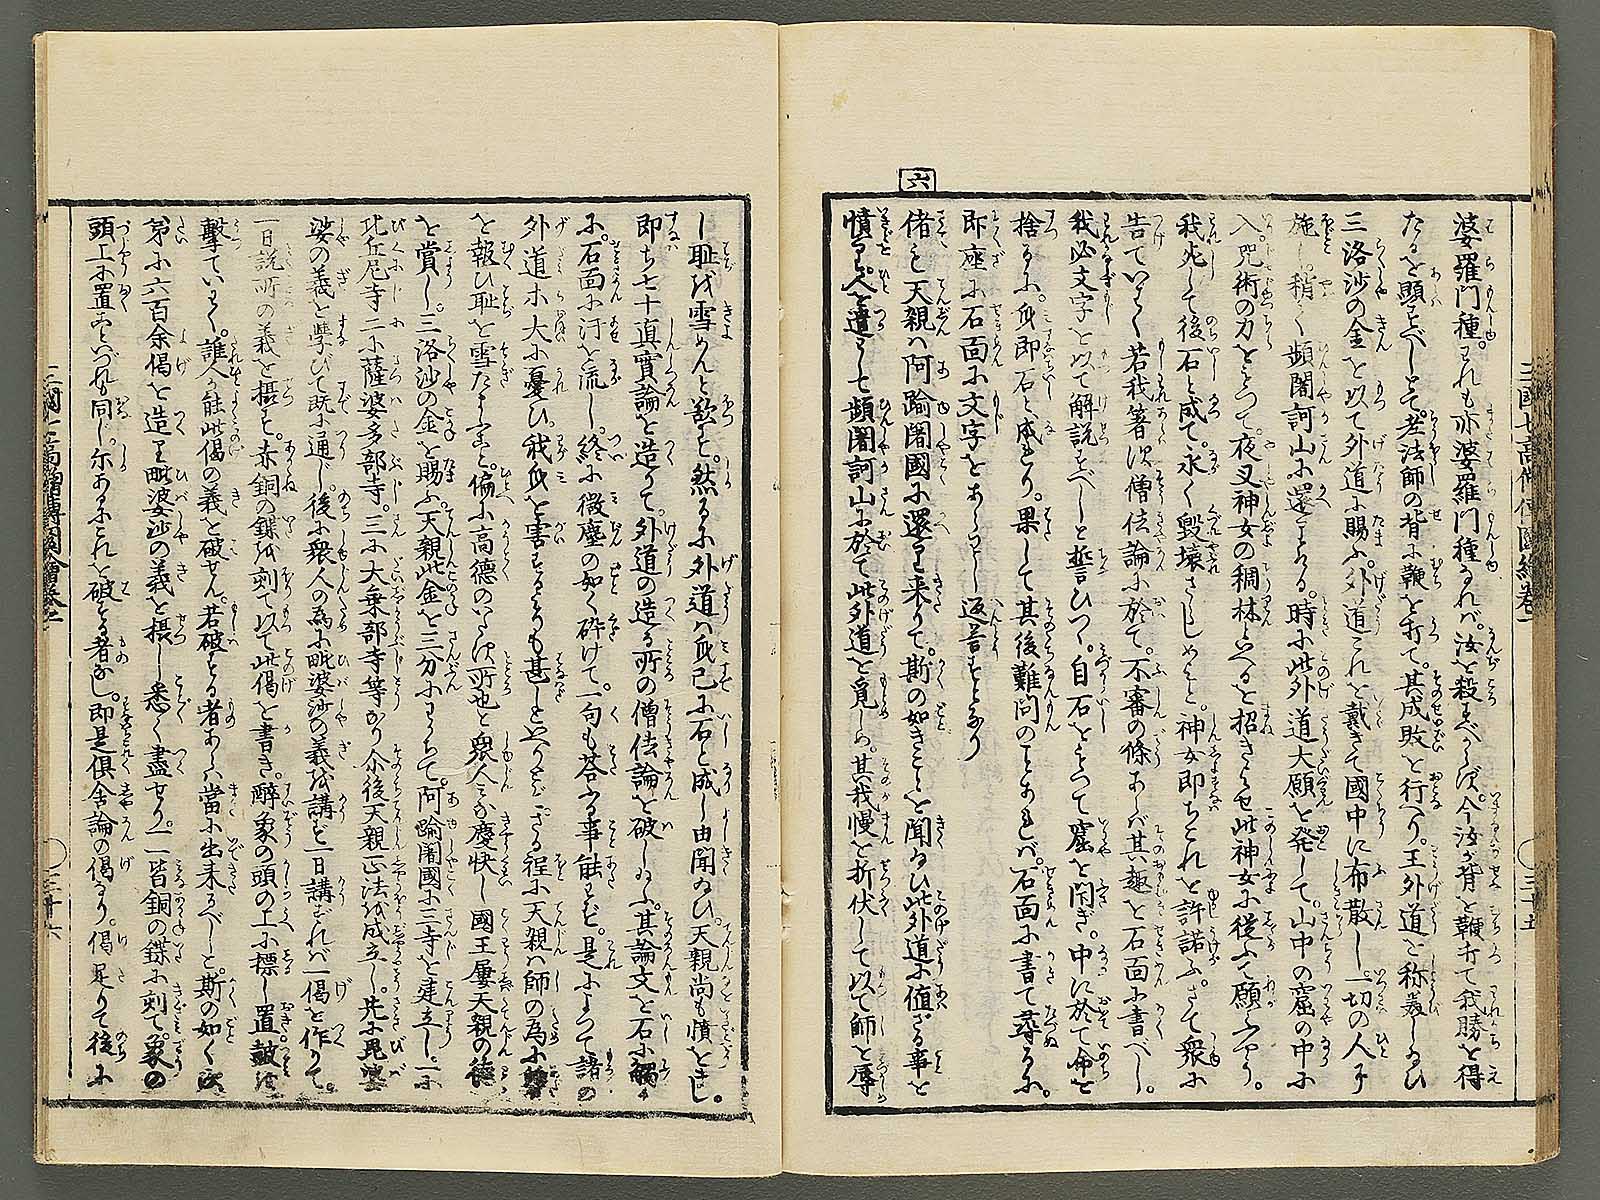 三國七高僧傳圖繪卷一
三十五
婆羅門種。われも亦婆羅門種なれバ。汝を殺すべからず。今汝が背を鞭打て我勝を得
たるを顕すべしとて。若法師の背に鞭を打て。其成敗を行へり。王外道を称美し給ひ
三洛沙の金を以て外道に賜ふ。外道これを戴きて國中に布散し。一切の人に
施し。稍く頻闍訶山に還とゞまる。時に此外道大願を発して。山中の窟の中に
入。咒術の力をもつて。夜叉神女の稠林といへるを招きよせ此神女に従ふて願ふやう。
我死して後石と成て。永く毀壊さしめずと。神女即ちこれを許諾ふ。さて衆に
告ていはく若我著す僧佉論に於て。不審の條あらバ其趣を石面に書べし。
我必文字を以て解説すべしと誓ひつゝ。自石をもつて窟を閉ぎ。中に於て命を
捨るに。身即石と成れり。果して其後難問のことあれバ。石面に書て尋るに。
即座に石面に文字をあらハし返荅すとなり
偖も天親ハ阿踰闍國に還り来りて。斯の如きことを聞給ひ此外道に値ざる事を
憤り。人を遣して頻闍訶山に於て此外道を覓しめ。其我慢を折伏して以て師の辱
六
し耻を雪めんと欲す。然るに外道ハ身已に石と成し由聞給ひ。天親尚も憤をまし。
即ち七十真實論を造りて。外道の造る所の僧佉論を破し給ふ。其論文を石に觸
に。石面に汗を流し。終に微塵の如く砕けて。一句も荅ふる事能ず。是によつて諸の
外道ホ大に憂ひ。我身を害するよりも甚しといへども。ざる程に天親ハ師の為に
を報ひ耻を雪たまふこと。偏に高徳のいたす所也と衆人みな慶快し國王屡天親の徳
を賞し。三洛沙の金を賜ふ。天親此金を三分にわかちて。阿踰闍國に三寺を建立し。一ニ
比丘尼寺二に薩婆多部寺。三に大乗部寺等なり尒後天親正法を成立し。先に毘婆
娑の義を學びて既に通じ。後に衆人の為に毗婆沙の義を講ず一日講ずれバ一偈を作りて。
一日説所の義を摂す。赤銅の鍱を刻て以て此偈を書き。醉象の頭の上に標し置皷を
撃ていはく。誰人か能此偈の義を破せん。若破する者あらバ當に出来るべしと。斯の如く次
第に六百余偈を造り毗婆沙の義を摂し悉く盡せり。一一皆銅の鍱に刻て。象の
頭上に置こといづれも同じ。尓あるにこれを破する者なし。即是倶舎論の偈なり。偈足りて後に
三國七高僧傳圖繪卷一
三十六